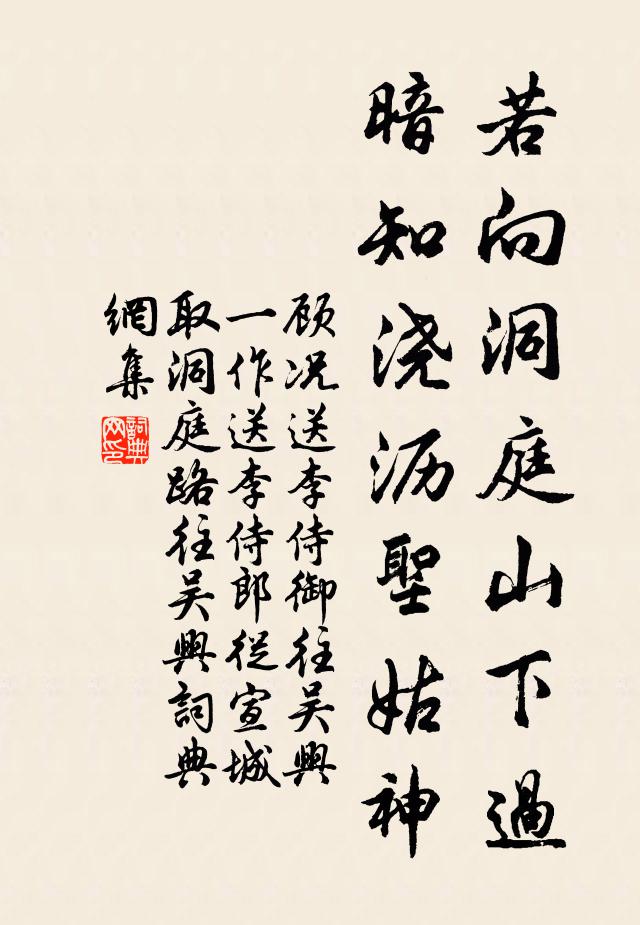 若向洞庭山下過
暗知浇沥聖姑神
顾况送李侍御往吴興
一作送李侍郎從宣城
取洞庭路往吴興詞典
網集
詞典
网印